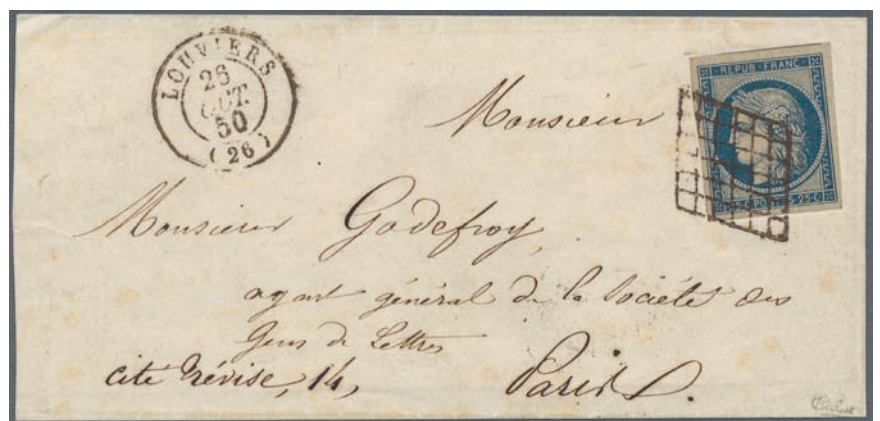 LOUVIERS
26
OCT.
50
(26)
REPUB·FRANC·
25·C·POSTES·25·C·
Monsieur
Monsieur Godefroy,
agent général de la Société des
Gens de Lettres
cité Trévise, 14,
Paris.